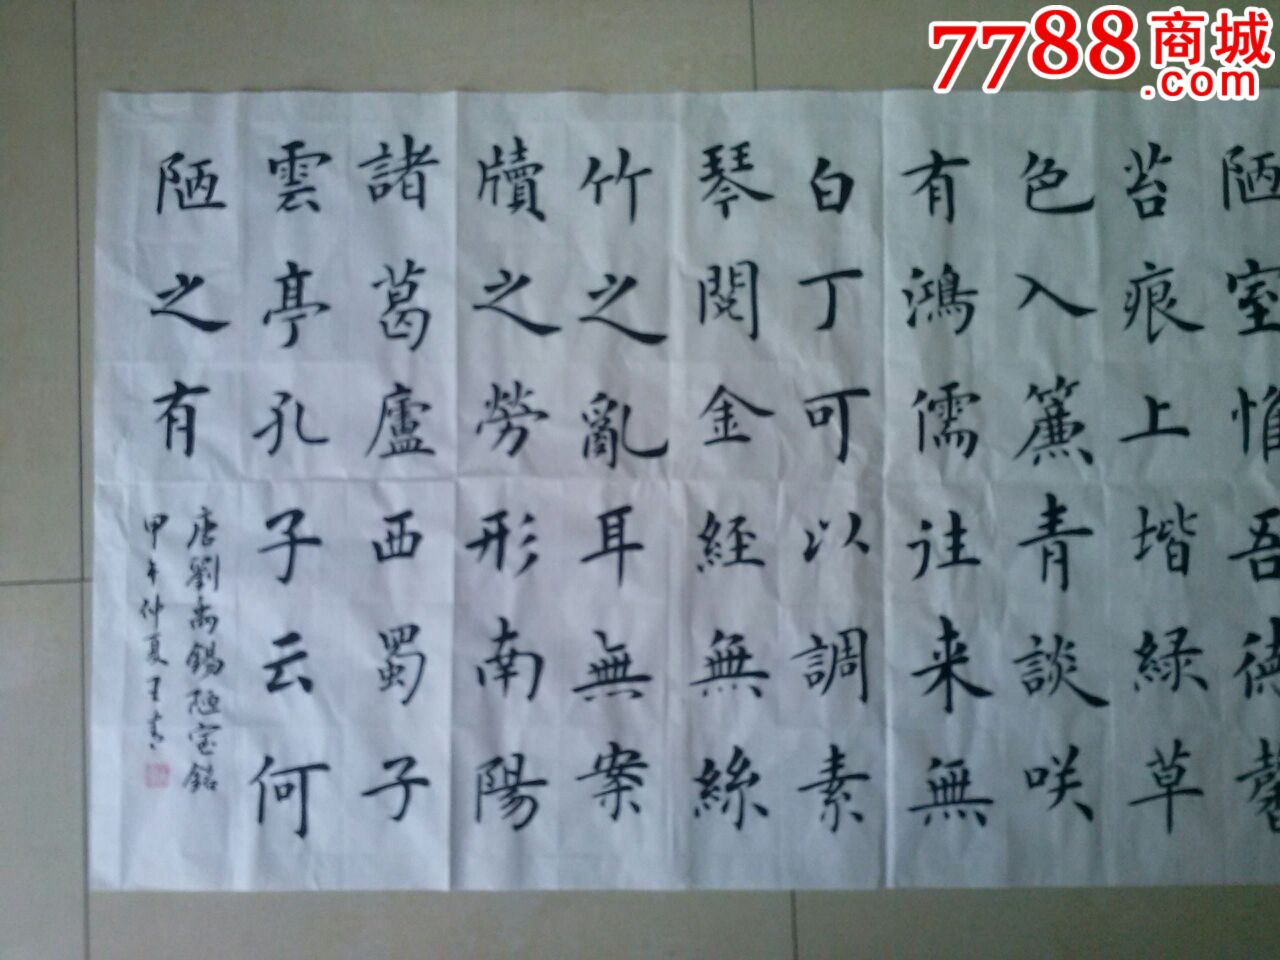 7788商城
.com
陋室惟吾德馨
苔痕上堦緑草
色入簾青談咲
有鴻儒往来無
白丁可以調素
琴閱金經無絲
竹之亂耳無案
牘之勞形南陽
諸葛廬西蜀子
雲亭孔子云何
陋之有
唐劉禹錫陋室銘
甲午仲夏王青